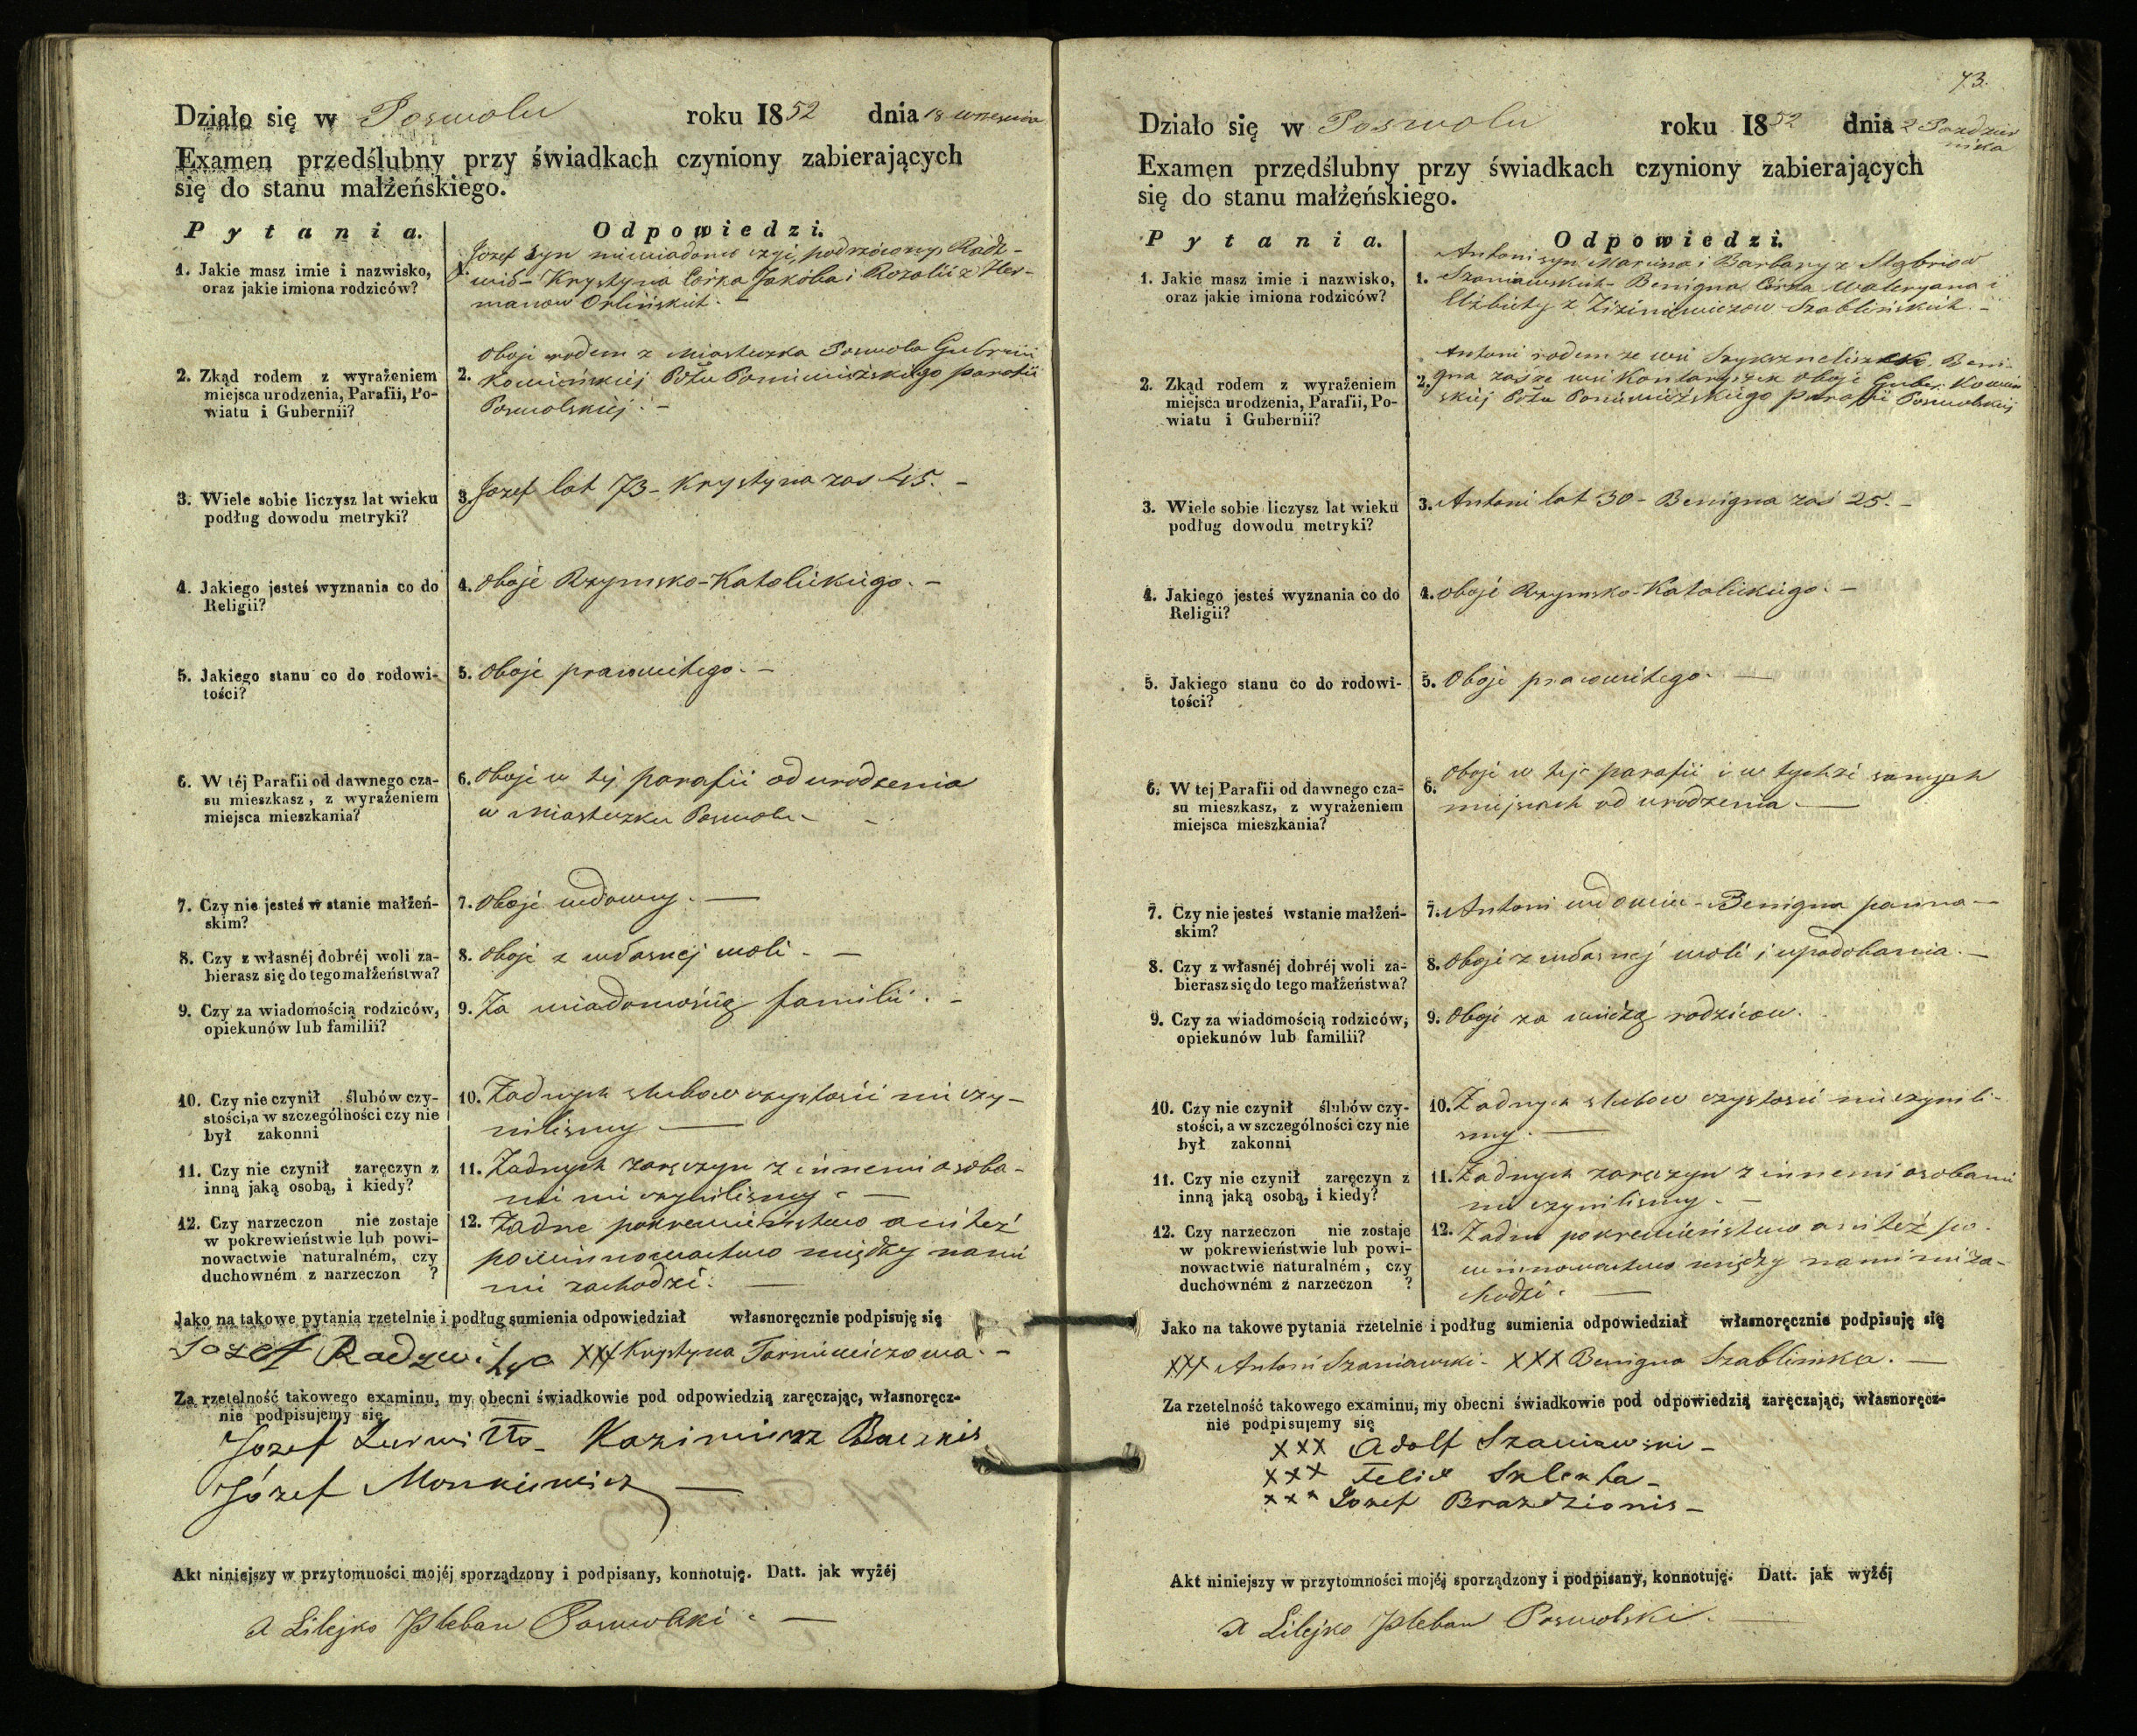 Działo się w Poswolu roku 1852 dnia 18 wrzesnia
Examen przedślubny przy świadkach czyniony zabierających
się do stanu małżeńskiego.
Pytania. Odpowiedzi.
1. Jakie masz imie i nazwisko,
oraz jakie imiona rodziców?
Jozef syn niewiadomo czyj, podrzócony
1. Krystyna Córka Jakóba i Rozalii z Her-
manow Orlińskich. -
2. Zkąd rodem z wyrażeniem
miejsca urodzenia, Parafii, Po-
wiatu i Gubernii?
oboje rodem z Miasteczka Poswola Gubernii
2. Kowieńskiej Pttu Poniewieżskiego parafii
Poswolskiej. -
3. Wiele sobie liczysz lat wieku
podług dowodu metryki?
3. Jozef lat 73 - Krystyna zas 45. -
4. Jakiego jesteś wyznania co do
Religii?
4. oboje Rzymsko-Katolickiego. -
5. Jakiego stanu co do rodowi-
tości?
5. oboje prawnitego. -
6. W téj Parafii od dawnego cza-
su mieszkasz, z wyrażeniem
miejsca mieszkania?
6. oboje w tej parafii od urodzenia
w Miasteczku Poswolu - -
7. Czy nie jesteś w stanie małżeń-
skim?
7. oboje wdowy. -
8. Czy z własnéj dobréj woli za-
bierasz się do tego małżeństwa?
8. oboje z własnej woli. -
9. Czy za wiadomością rodziców,
opiekunów lub familii?
9. Za wiadomością familii. -
10. Czy nie czynił ślubów czy-
stości, a w szczególności czy nie
był zakonni
10. Żadnych slubow czystości nie czy-
nilismy -
11. Czy nie czynił zaręczyn z
inną jaką osobą, i kiedy?
11. Żadnych zaręczyn z innemi osoba-
mi nie czynilismy. -
12. Czy narzeczon nie zostaje
w pokrewieństwie lub powi-
nowactwie naturalném, czy
duchowném z narzeczon ?
12. Żadne pokrewieństwo ani też
powinnowactwo między nami
nie zachodzi. -
Jako na takowe pytania rzetelnie i podług sumienia odpowiedział własnoręcznie podpisuję się
Jozef XXX Krystyna Tarniewiczowa. -
Za rzetelność takowego examinu, my obecni świadkowie pod odpowiedzią zaręczając, własnoręcz-
nie podpisujemy się
Jozef Kazimierz
Józef Monkiewicz -
Akt niniejszy w przytomności mojéj sporządzony i podpisany, konnotuję. Datt. jak wyżéj
A Lilejko Pleban Poswolski. -
73.
Działo się w Poswolu roku 1852 dnia 2 Pazdzier
nika
Examen przedślubny przy świadkach czyniony zabierających
się do stanu małżeńskiego.
Pytania. Odpowiedzi.
1. Jakie masz imie i nazwisko,
oraz jakie imiona rodziców?
Antoni syn Marcina i Barbary z
1. Szaniawskich - Benigna Corka Waleryana i
Elżbiety z Szablińskich. -
2. Zkąd rodem z wyrażeniem
miejsca urodzenia, Parafii, Po-
wiatu i Gubernii?
Antoni rodem ze wsi Beni-
2. gna zaś ze wsi oboje Guber. Kowien
skiej Pttu Poniewieżskiego parafii Poswolskiej
3. Wiele sobie liczysz lat wieku
podług dowodu metryki?
3. Antoni lat 30 - Benigna zaś 25. -
4. Jakiego jesteś wyznania co do
Religii?
4. oboje Rzymsko-Katolickiego. -
5. Jakiego stanu co do rodowi-
tości?
5. Oboje prawnitego. -
6. W tej Parafii od dawnego cza-
su mieszkasz, z wyrażeniem
miejsca mieszkania?
oboje w tej parafii i w tychże samych
6. miejscach od urodzenia. -
7. Czy nie jesteś wstanie małżeń-
skim?
7. Antoni wdowiec - Benigna panna -
8. Czy z własnéj dobréj woli za-
bierasz się do tego małżeństwa?
8. oboje z własnej woli i upodobania. -
9. Czy za wiadomością rodziców,
opiekunów lub familii?
9. oboje za wiedzą rodzicow.
10. Czy nie czynił ślubów czy-
stości, a w szczególności czy nie
był zakonni
10. Żadnych slubow czystosci nie czynili-
smy. -
11. Czy nie czynił zaręczyn z
inną jaką osobą, i kiedy?
11. Żadnych zaręczyn z innemi osobami
nie czynilismy. -
12. Czy narzeczon nie zostaje
w pokrewieństwie lub powi-
nowactwie naturalném, czy
duchowném z narzeczon ?
12. Żadne pokrewieństwo ani też po-
winnowactwo między nami nie za-
chodzi. -
Jako na takowe pytania rzetelnie i podług sumienia odpowiedział własnoręcznie podpisuję się
XXX Antoni Szaniawski - XXX Benigna Szablinska. -
Za rzetelność takowego examinu, my obecni świadkowie pod odpowiedzią zaręczając, własnoręcz-
nie podpisujemy się
XXX Adolf Szaniawski -
XXX Felix Szlenta -
XXX Jozef Brazdzionis -
Akt niniejszy w przytomności mojéj sporządzony i podpisany, konnotuję. Datt. jak wyżéj
A Lilejko Pleban Poswolski. -